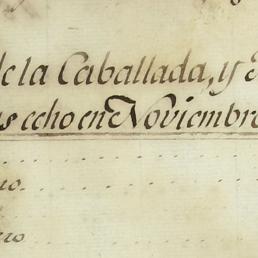 de la Caballada, y
echo en Noviembre